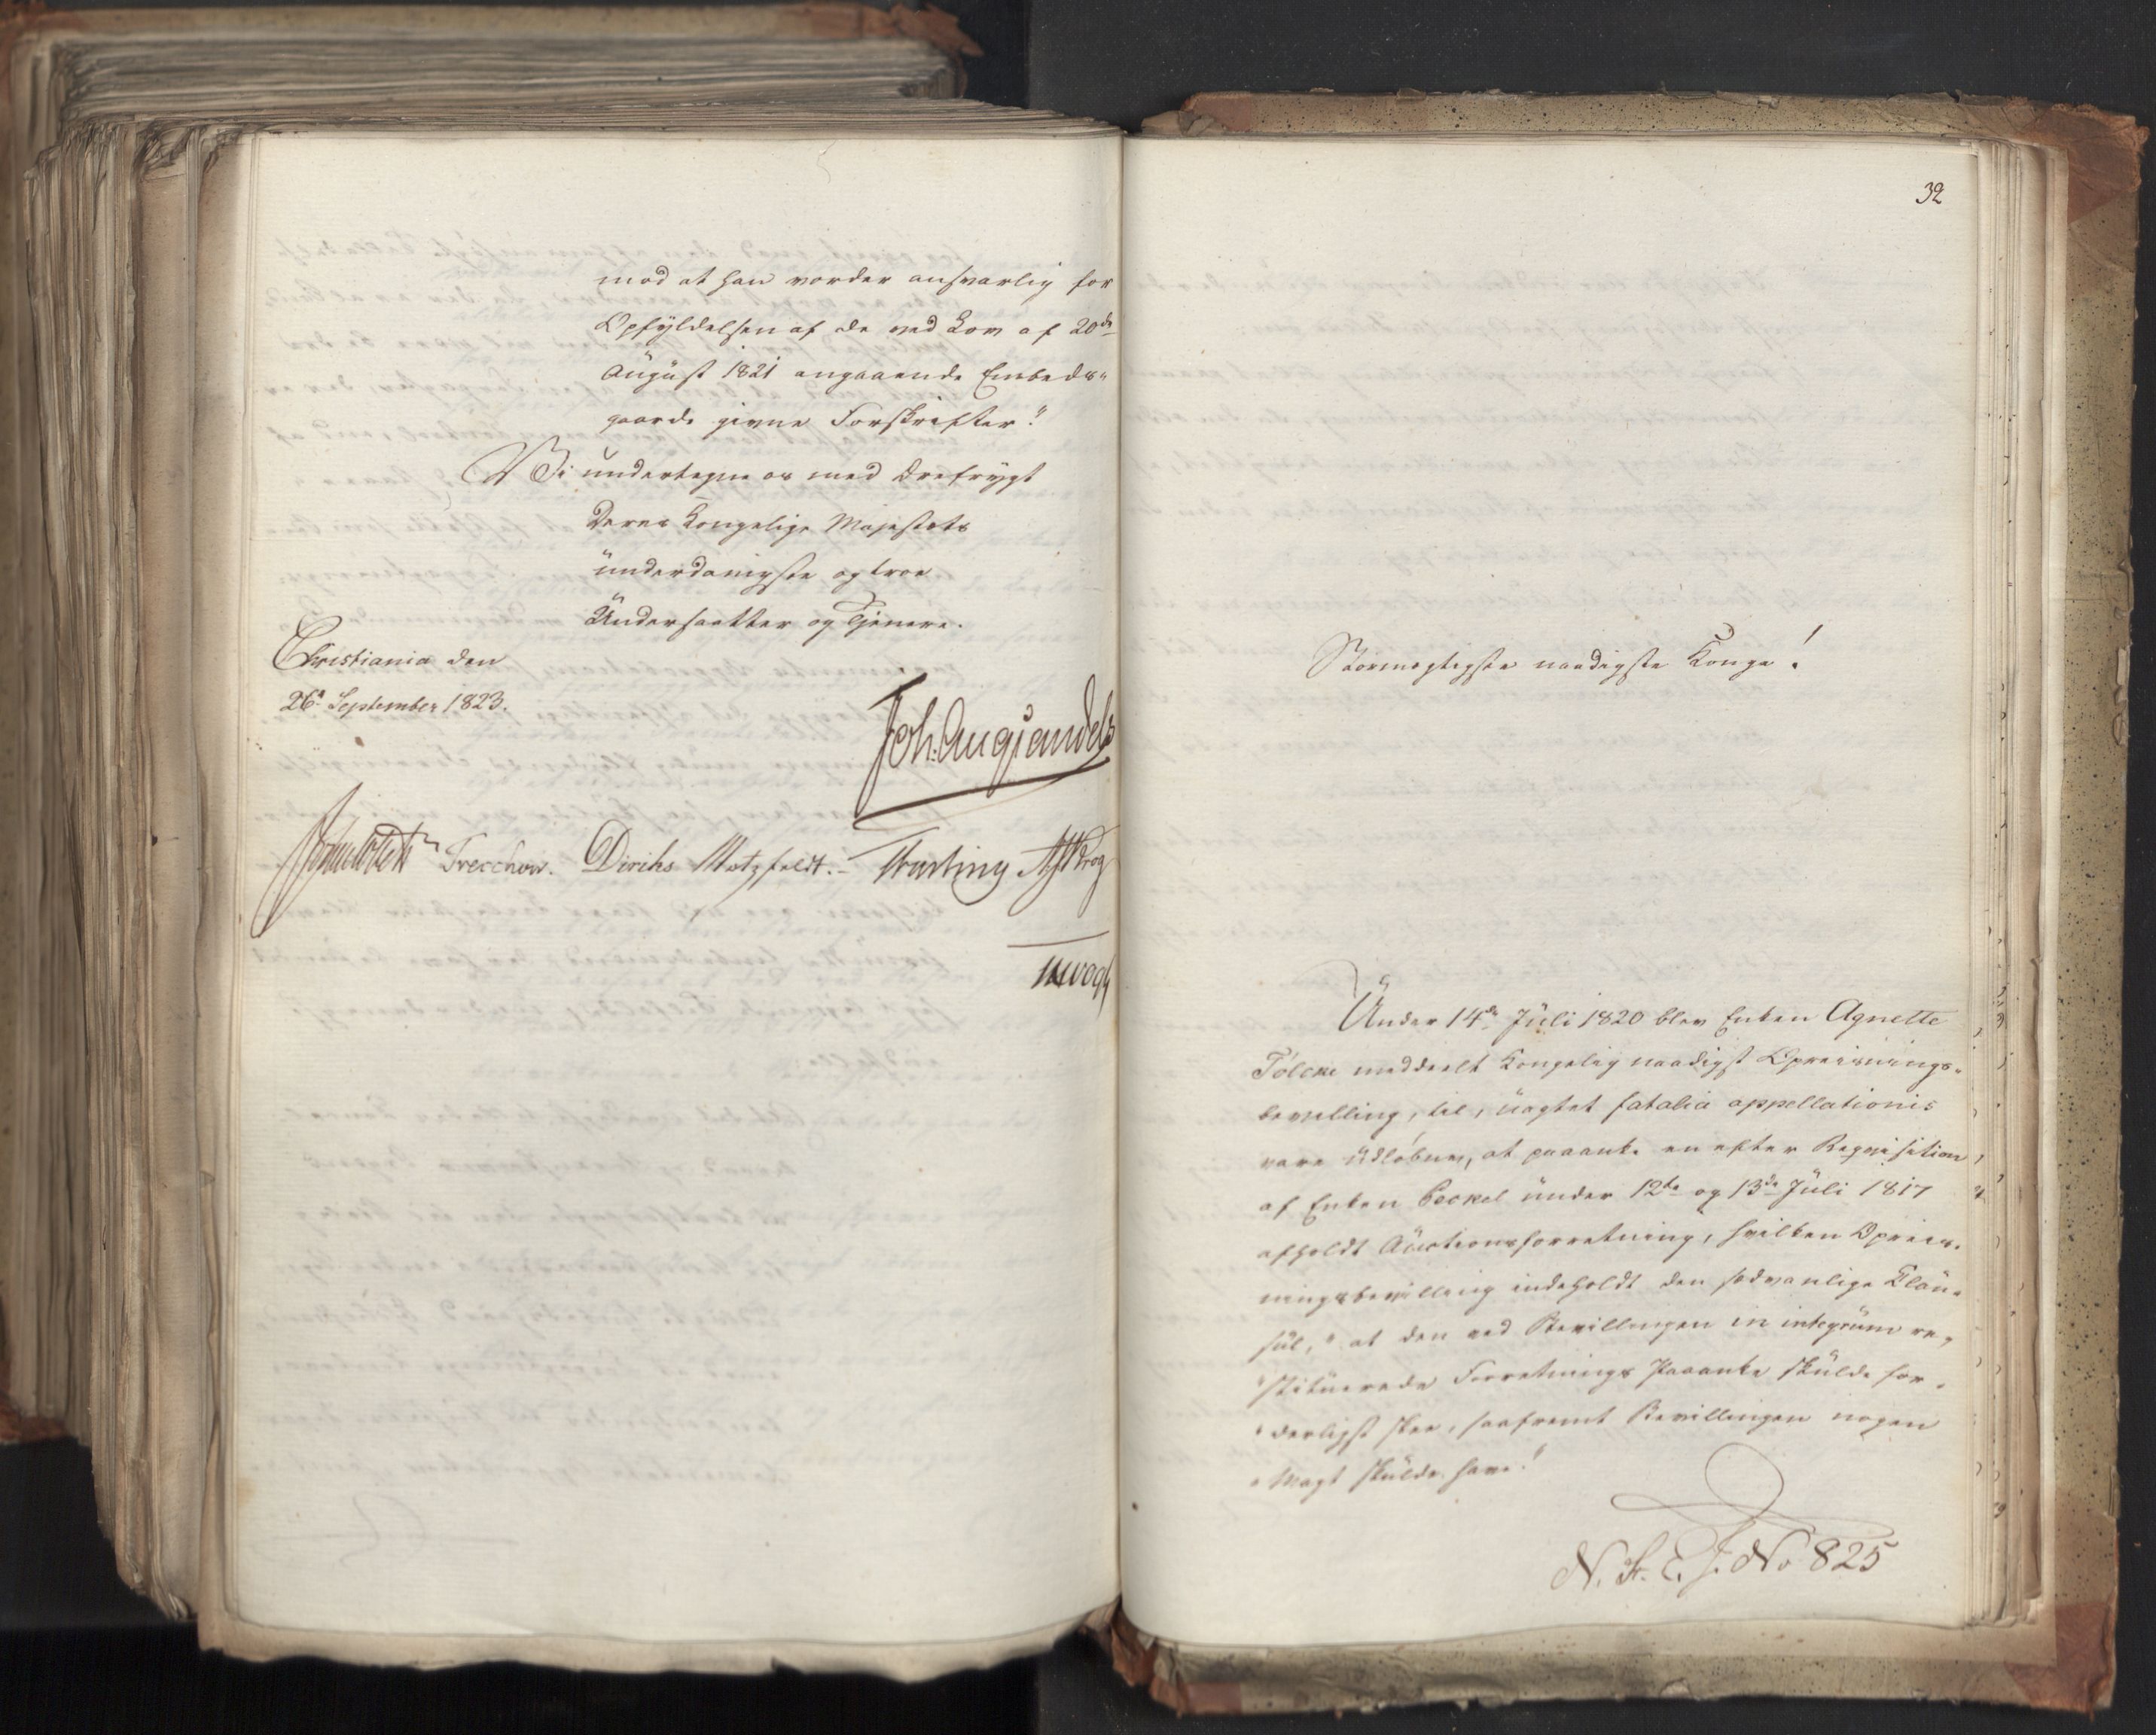 mod at han vorder ansvarlig for
Opfyldelsen af de ved Lov af 20de
August 1821 angaaende Embeds"
gaarde givne Forskrifter."
Vi undertegne os med Ærefrygt
Deres Kongelige Majestæts
underdanigste og troe
Undersaatter og Tjenere.
Christiania den
26d September 1823.
Joh. Aug Sandels
Treschow. Diriks Motzfeldt. Fasting
32
Stormægtigste naadigste Konge!
Under 14de Juli 1820 blev Enken Agnette
Tölcke meddeelt Kongelig naadigst Opreisnings-
bevilling, til, uagtet fatalia appellationis
vare udløbne, at paaanke en efter Reqvisition
af Enken Peckel under 12te og 13de Juli 1817
afholdt Auctionsforretning, hvilken Opreis-
ningsbevilling indeholdt den sædvanlige Klau-
sul, "at den ved Bevillingen in integrum re-
"stituerede Forretnings Paaanke skulde for-
"derligst skee, saafremt Bevillingen nogen
"Magt skulde have."
N. St. E. J. No 825